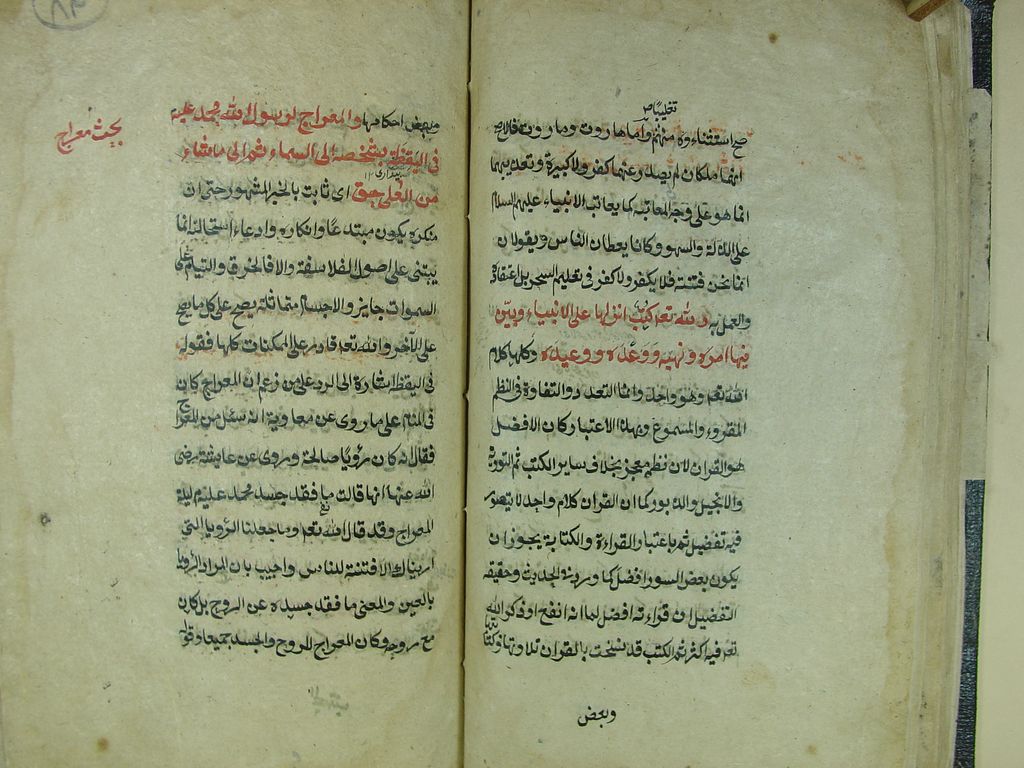 تغليبًا صح
صح استثناؤه منهم واما هاروت وماروت فالاصح
انهما ملكان لم يصدر عنهما كفر ولا كبيرة وتعذيبهما
انما هو على وجه المعاتبة كما يعاتب الانبياء عليهم السلام
على الذلة والسهو وكانا يعظان الناس ويقولان
انما نحن فتنة فلا تكفر ولا كفر في تعليم السحر بل اعتقاده
والعمل به ولله تعم كتب انزلها على الانبياء وبين
فيها امره ونهيه ووعده ووعيده وكلها كلام
الله تعم وهو واحد وانما التعدد والتفاوة في النظم
المقروء والمسموع وبهذا الاعتبار كان الافضل
هو القران لان نظم معجز بخلاف ساير الكتب ثم التورية
والانجيل والذبور كما ان القران كلام واحد لا يتصور
فيه تفضيل ثم باعتبار القراءة والكتابة يجوز ان
يكون بعض السور افضل كما ورد في الحديث وحقيقة
التفضيل ان قراءته افضل لما انه انفع او ذكر الله
تعم فيه اكثر ثم الكتب قد نسخت بالقران تلاوتها وكتابتها
وبعض
٨٣
بحث معراج
وبعض احكامها والمعراج لرسول الله محمد عليه
في اليقظة بشخصه الى السماء ثم الى ما شاء
بيداري ١٢
من العلى حق اى ثابت بالخبر المشهور حتى ان
منكره يكون مبتدعًا وانكاره وادعاء استحالته انما
يبتنى على اصول الفلاسفة والا فالخرق والتيام على
السموات جايز والاجسام متماثلة يصح على كل ما يصح
على الآخر والله تعم قادر على الممكنات كلها فقوله
في اليقظة اشارة الى الرد على من زعم ان المعراج كان
في المنام على ما روى عن معاوية انه سئل من المعراج
فقال انه كان رؤيا صالحة وروى عن عايشة رضى
الله عنها انها قالت ما فقد جسد محمد عليه م ليلة
المعراج وقد قال الله تعم وما جعلنا الرؤيا التي
اريناك الا فتنة للناس واجيب بان المراد الرؤيا
بالعين والمعنى ما فقد جسده عن الروح بل كان
مع روحه وكان المعراج للروح والجسد جميعا وقوله